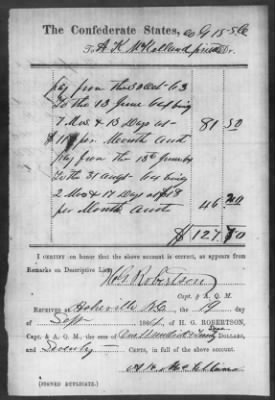 The Confederate States, Co G 18
To A K McHolland private Dr.
Pay from the 30 Oct 63
To the 13 June 64 being
7 Mos & 13 Days at
$11 per Month Amt 81 50
Pay from the 13th June
to the 31 Augt 64 being
2 Mos & 17 Days at $18
per Month Amt 46 20
$ 127.70
I CERTIFY on honor that the above account is correct, as appears from
Remarks on Descriptive List,
H G Robertson
Capt. & A. Q. M.
RECEIVED at Asheville N.C. the day
of Sept 1864, of H. G. ROBERTSON,
Capt. & A. Q. M., the sum of One Hundred & Twenty Seven DOLLARS,
and Seventy CENTS, in full of the above account.
A K
(SIGNED DUPLICATE.)